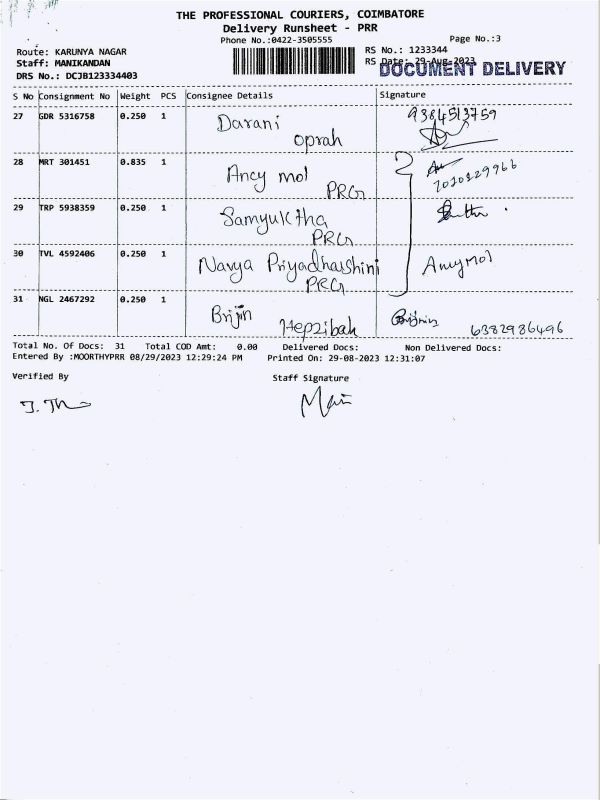 THE PROFESSIONAL COURIERS, COIMBATORE
Delivery Runsheet - PRR
Phone No.:0422-3505555
Page No.:3
Route: KARUNYA NAGAR
RS No.: 1233344
Staff: MANIKANDAN
RS Date: 29-Aug-2023
DOCUMENT DELIVERY
DRS No.: DCJB123334403
S No Consignment No Weight PCS Consignee Details Signature
27 GDR 5316758 0.250 1 Darani 9384513759
oprah
28 MRT 301451 0.835 1 Ancy mol
PRG 7010129966
29 TRP 5938359 0.250 1 Samyuktha
PRG
30 TVL 4592406 0.250 1 Navya Priyadharshini Ancymol
PRG
31 NGL 2467292 0.250 1 Brijin
Hepzibah 6382986496
Total No. Of Docs: 31 Total COD Amt: 0.00 Delivered Docs: Non Delivered Docs:
Entered By :MOORTHYPRR 08/29/2023 12:29:24 PM Printed On: 29-08-2023 12:31:07
Verified By Staff Signature